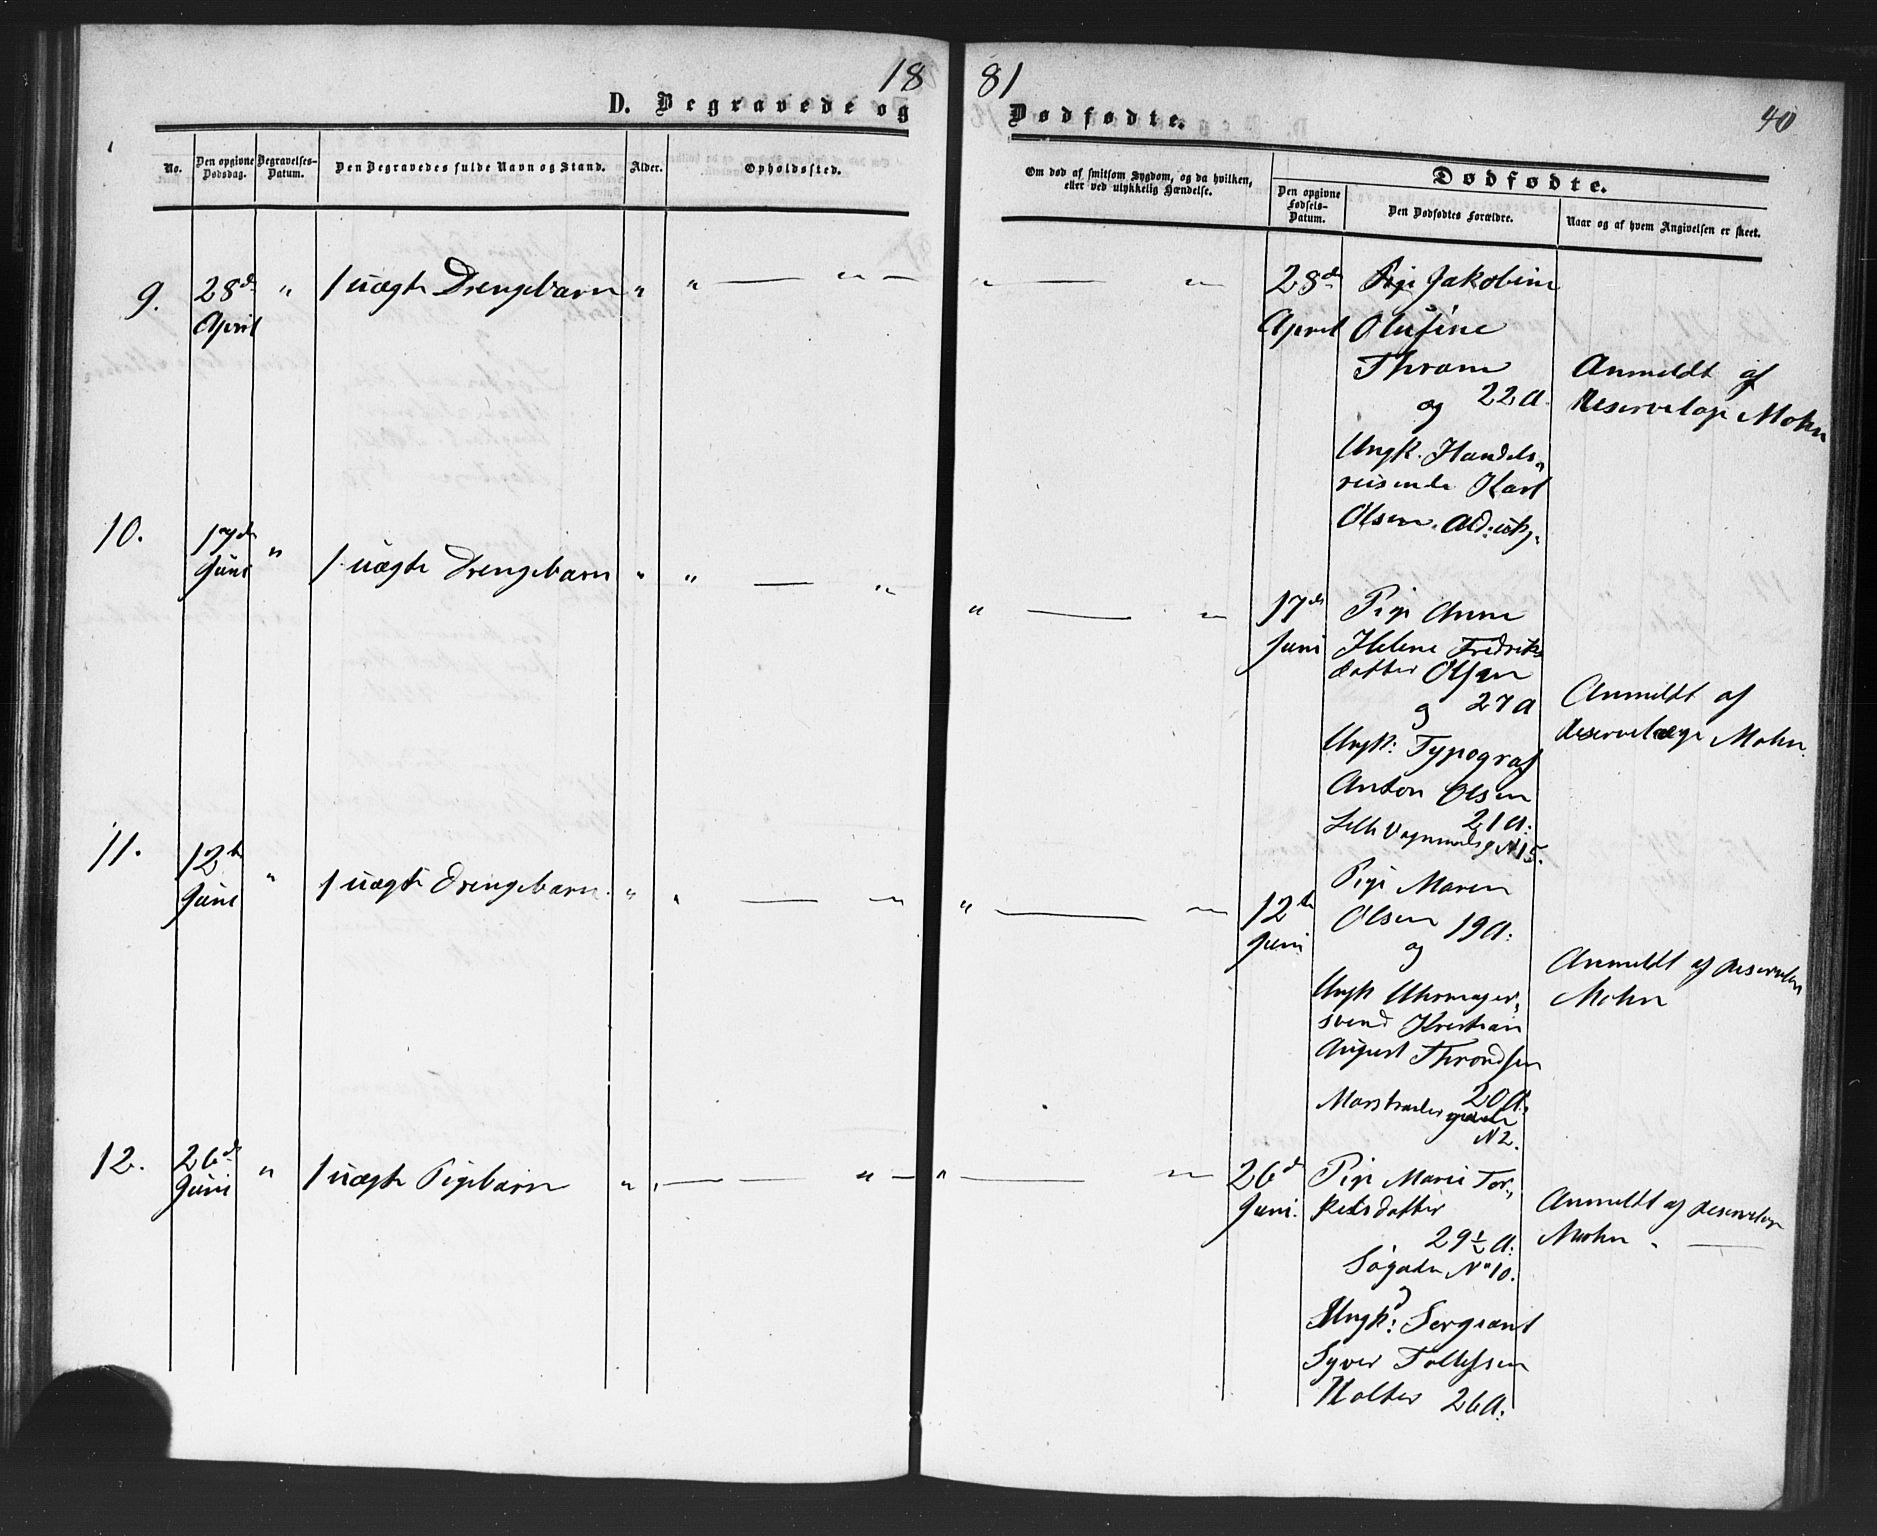 18 81
40
D. Begravede og Dødfødte.
No.
Den opgivne Dødsdag.
Begravelses-Datum.
Den Begravedes fulde Navn og Stand.
Alder.
Opholdssted.
Om død af smitsom Sygdom, og da hvilken,
eller ved ulykkelig Hændelse.
Dødfødte.
Den opgivne Fødsels-Datum.
Den Dødfødtes Forældre.
Naar og af hvem Angivelsen er skeet.
9. 28de April " 1 uægte Drengebarn " " — " —
" — " 28de April
Pige Jakobine
Olufine
Thrane
og 22 A.
Ungk. Handels-
reisende Karl
Olsen. Ald: ubk.
Anmeldt af
Reservelæge Mohn
10. 17de Juni " 1 uægte Drengebarn " " — "
" — " 17de Juni
Pige Anne
Helene Fredriks
datter Olsen
og 27 A
Ungk: Typograf
Anton Olsen
21 A:
N 15.
Anmeldt af
Reservelæge Mohn.
11. 12te Juni " 1 uægte Drengebarn. " " — "
" — " 12te Juni
Pige Maren
Olsen 19 A:
og
Ungk Uhrmager-
svend Kristian
August Throndsen
20 A.
N 2.
Anmeldt af Reservelæge
Mohn
12. 26de Juni " 1 uægte Pigebarn " " — — " —
" — " 26de Juni.
Pige Marie Tor-
kelsdatter
29 ½ A:
Søgaden No 10.
og
Ungk: Sergeant
Syver Tollefsen
Holter 26 A:
Anmeldt af Reservelæge
Mohn. —